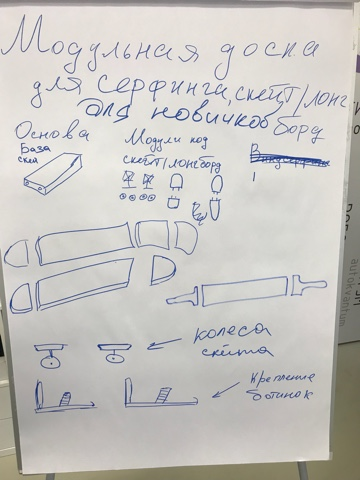 Модульная доска
для серфинга, скейт/лонг
для новичков борд
Основа
База
скей
Модули под
скейт/лонгборд
колеса
скейта
крепление
ботинок
autokvantum